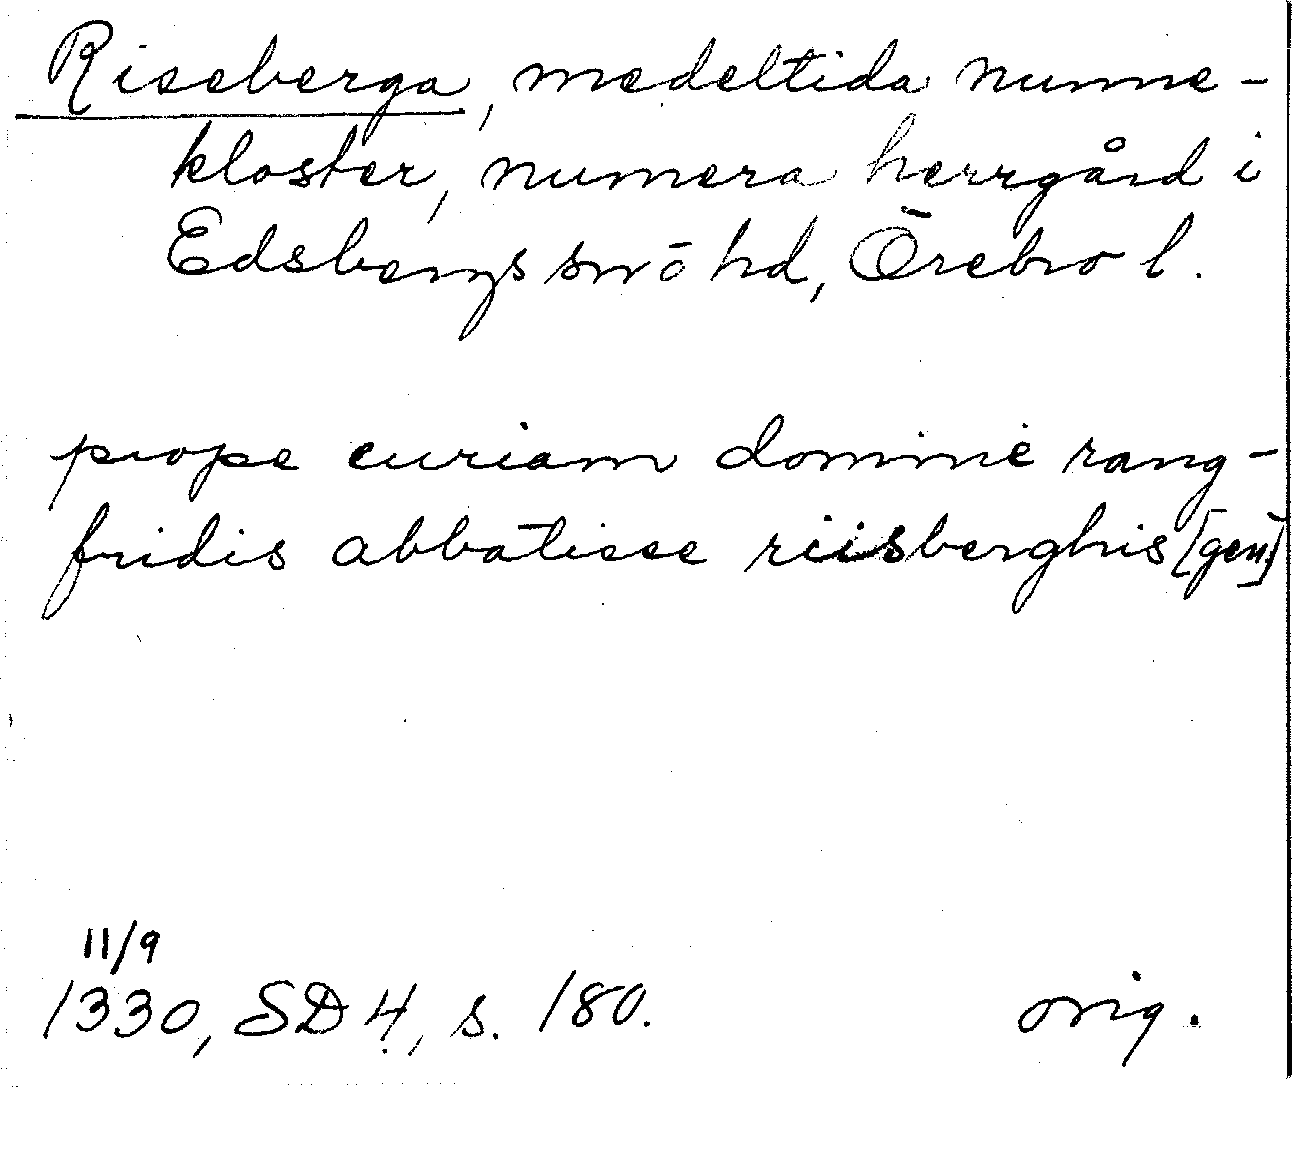 Riseberga, medeltida nunne-
kloster, numera herrgård i
Edsbergs sn o hd, Örebro l.
prope curiam domine rang-
fridis abbatisse riisberghis [gen]
11/9
1330, SD 4, s. 180. orig.